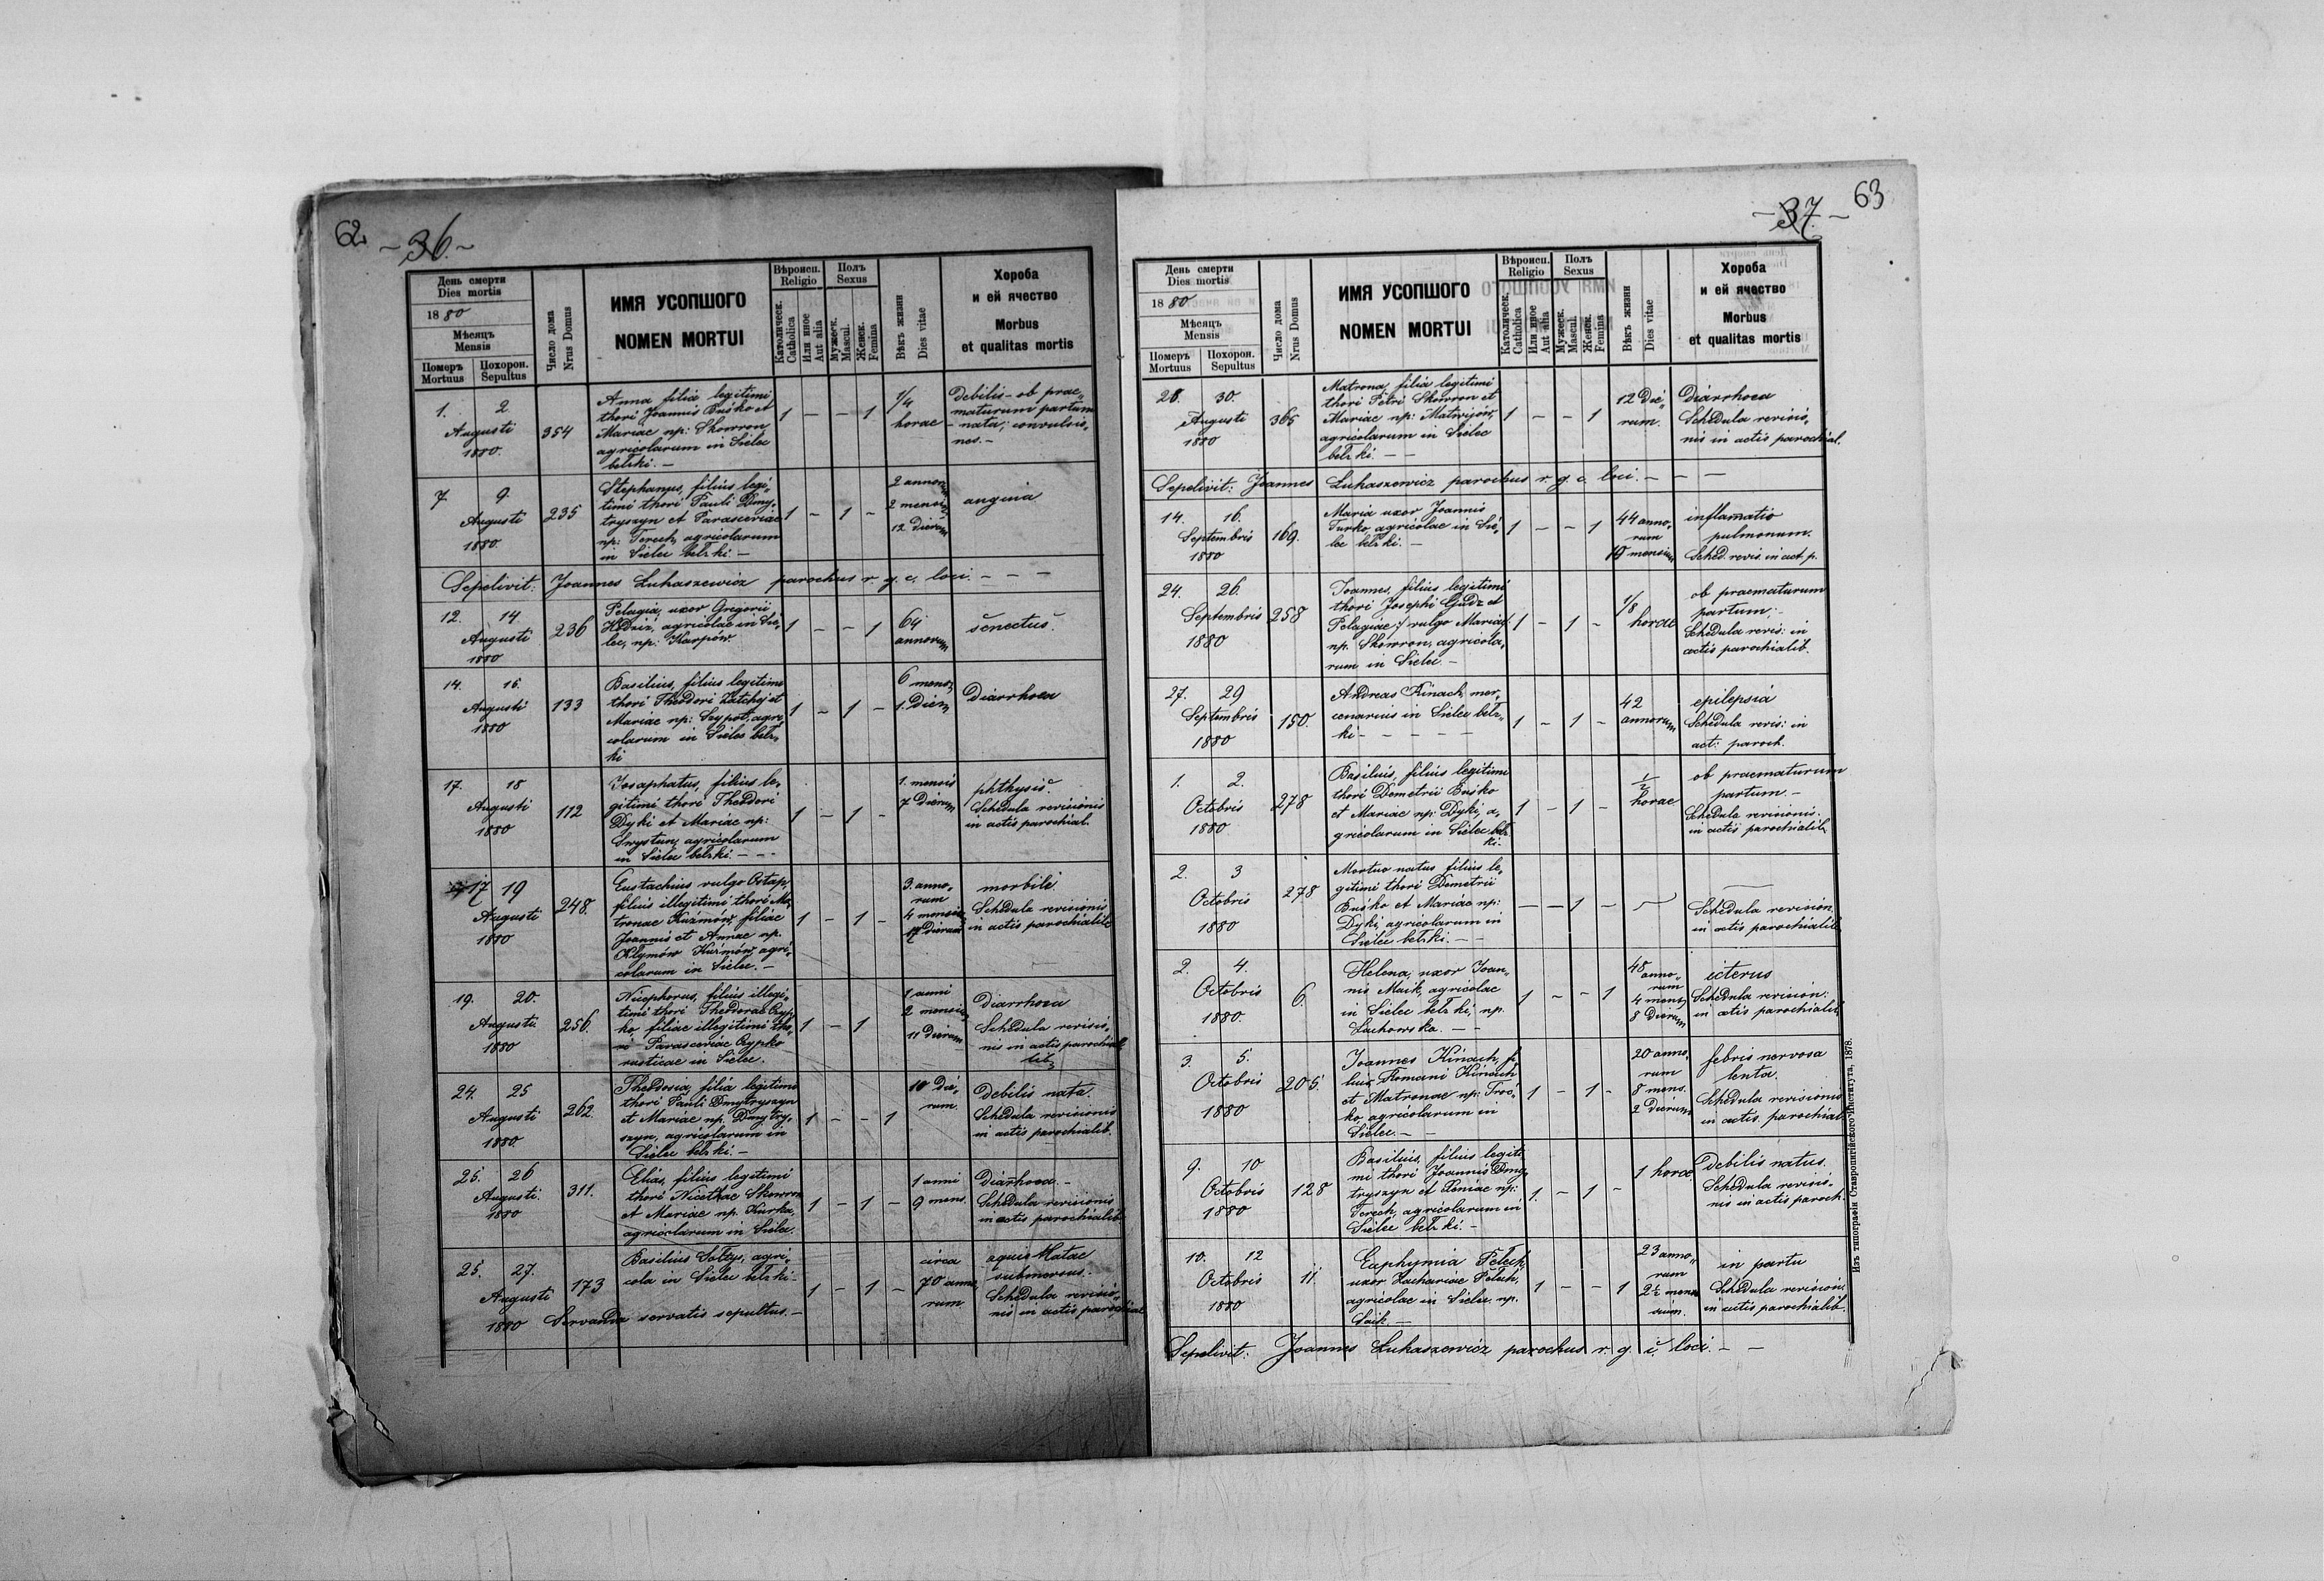 62.
- 36. -
День смерти
Dies mortis
1880
Мѣсяцъ
Mensis
Померъ
Mortuus
Похорон.
Sepultus
Число дома
Nrus Domus
ИМЯ УСОПШОГО
NOMEN MORTUI
Вѣроисп.
Religio
Католическ.
Catholica
Или иное
Aut alia
Полъ
Sexus
Мужеск.
Mascul.
Женск.
Femina
Вѣкъ жизни
Dies vitae
Хороба
и ей ячество
Morbus
et qualitas mortis
1. 2
Augusti
1880.
354
Anna filia legitimi
thori Joannis Buśko et
Mariae np: Skowron
agricolarum in Sielec
bełzki. -
1 - - 1
1/4
horae
Debilis - ob prae„
maturum partum
nata; convulsio„
nes. -
7. 9.
Augusti
1880.
235
Stephanus, filius legi„
timi thori Pauli Dmy„
tryszyn et Parasceviae
np: Terech, agricolarum
in Sielec bełzki. -
1 - 1 -
2 annor.
2 mensiu
12 dierum
angina
Sepelivit: Joannes Łukaszewicz parochus r. g. c. loci. - - -
12. 14
Augusti
1880
236
Pelagia, uxor Gregorii
Hedziż, agricolae in Sie„
lec, np: Karpów
1 - - 1
64
annorum
senectus
14. 16.
Augusti
1880
133
Basilius, filius legitimi
thori Theodori Zatchy et
Mariae np: Szypot, agri„
colarum in Sielec bełz„
ki
1 - 1 -
6 mens.
1. Diem
Diarrhoea
17. 18
Augusti
1880
112
Josaphatus, filius le„
gitimi thori Theodori
Dyki et Mariae np:
Swystun, agricolarum
in Sielec bełzki. - - -
1 - 1 -
1. mensis
7 Dierum
phthysis.
Schedula revisionis
in actis parochial.
17 19
Augusti
1880
248.
Eustachius vulgo Ostap,
filius illegitimi thori Ma„
tronae Kuźmów, filiae
Joannis et Annae np.
Kłymów Kuźmów, agri„
colarum in Sielec. -
1 - 1 -
3. anno„
rum
4 mensiu
17 dierum
morbili
Schedula revisionis
in actis parochialib.
19. 20.
Augusti
1880
256.
Nicephorus, filius illegi„
timi thori Theodorae Cyp„
ko, filiae illegitimi tho„
ri Parasceviae Cypko
rusticae in Sielec.
1 - 1
1 anni
2 mensiu
11 Dierum
Diarrhoea
Schedula revisio„
nis in actis parochia„
lib.
24. 25
Augusti
1880.
262.
Theodosia, filia legitimi
thori Pauli Dmytryszyn
et Mariae np. Dmytry„
szyn, agricolarum in
Sielec bełzki. -
1 - - 1
10 Die„
rum.
Debilis nata.
Schedula revisionis
in actis parochialib.
25. 26
Augusti.
1880
311.
Elias, filius legitimi
thori Nicetae Skowron
et Mariae np. Kurka,
agricolarum in Sielec.
1 - 1 -
1 anni
9 mens.
Diarrhoea. -
Schedula revisionis
in actis parochialib
25. 27.
Augusti
1880
173
Basilius Sołtys, agri„
cola in Sielec bełzki -
Servandis servatis sepultus. -
1 - 1 -
circa
70 anno„
rum
aquis Ratae
submersus.
Schedula revisio„
nis in actis parochial.
63
- 37. -
День смерти
Dies mortis
1880
Мѣсяцъ
Mensis
Померъ
Mortuus
Похорон.
Sepultus
Число дома
Nrus Domus
ИМЯ УСОПШОГО
NOMEN MORTUI
Вѣроисп.
Religio
Католическ.
Catholica
Или иное
Aut alia
Полъ
Sexus
Мужеск.
Mascul.
Женск.
Femina
Вѣкъ жизни
Dies vitae
Хороба
и ей ячество
Morbus
et qualitas mortis
30.
Augusti
1880
365
Matrona, filia legitimi
thori Petri Skowron et
Mariae np: Matwijów,
agricolarum in Sielec
bełzki. - -
1 - - 1
12 Die„
rum.
Diarrhoea
Schedula revisio„
nis in actis parochial.
Sepelivit: Joannes Łukaszewicz parochus r. g. c. loci. - - -
14. 16.
Septembris
1880
169.
Maria uxor Joannis
Turko, agricolae in Sie„
lec bełzki. -
1 - - 1
44 anno„
rum
10 mensium
inflamatio
pulmonum.
Sched. revis. in act. p.
24. 26.
Septembris
1880
258
Joannes, filius legitimi
thori Josephi Gudz et
Pelagiae /: vulgo Mariae:/
np. Skowron, agricola„
rum in Sielec. -
1 - 1 -
1/8
horae
ob praematurum
partum; -
Schedula revis: in
actis parochialib.
27. 29
Septembris
1880
150.
Andreas Kinach, mer„
cenarius in Sielec bełz„
ki - - - - -
1 - 1 -
42
annorum
epilepsia
Schedula revis: in
act: paroch.
1. 2.
Octobris
1880
278
Basilius, filius legitimi
thori Demetrii Buśko
et Mariae np: Dyki, a„
gricolarum in Sielec beł„
ki.
1 - 1 -
1/2
horae
ob praematurum
partum. -
Schedula revisionis.
in actis parochialib.
2. 3
Octobris
1880
278
Mortuo natus filius le„
gitimi thori Demetrii
Buśko et Mariae np:
Dyki, agricolarum in
Sielec bełzki. - -
- - 1 -
Schedula revision.
in actis parochialib.
2. 4.
Octobris
1880.
6.
Helena, uxor Joan„
nis Maik, agricolae
in Sielec bełzki, np.
Lachowska. - -
1 - - 1
48 anno„
rum
4 mens.
8 Dierum
icterus
Schedula revision:
in actis parochialib.
3. 5.
Octobris
1880
205.
Joannes Kinach, fi„
lius Romani Kinach
et Matronae np: Troś„
ko, agricolarum in
Sielec. - -
1 - 1 -
20 anno„
rum
8 mens.
2 Dierum
febris nervosa
lenta.
Schedula revisionis
in actis. parochial.
9. 10
Octobris
1880
128
Basilius, filius legiti„
mi thori Joannis Dmy„
tryszyn et Xeniae np:
Terech, agricolarum in
Sielec bełzki. -
1. - 1 -
1 horae
Debilis natus.
Schedula revisio„
nis in actis paroch.
10. 12
Octobris
1880
11.
Euphymia Pełech,
uxor Zachariae Pełech,
agricolae in Sielec np.
Saik. -
1 - - 1
23 anno„
rum
2½ men„
sium.
in partu
Schedula revision.
in actis parochialib.
Sepelivit: Joannes Łukaszewicz parochus r. g. c. loci. - -
Изъ типографіи Ставропигійского Института, 1878.